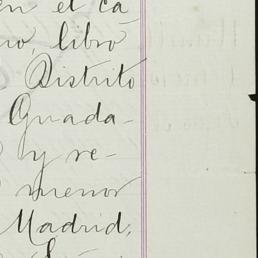 en el ca
no, libro
Distrito
Guada-
y re-
menor
Madrid,